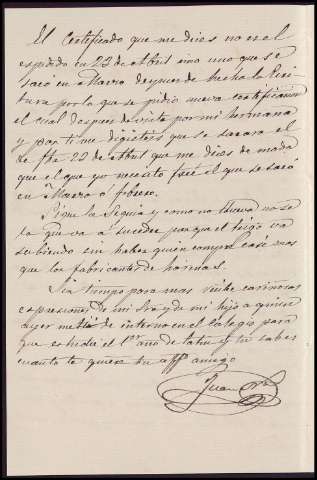 El Certificado que me dices no es el
espedido en 22 de Abril sino uno que se
sacó en Marzo despues de hecha la Escri-
tura por la que se pidio nueva certificacion
el cual despues de visto por mi hermana
y por ti me dijisteis que se sacara el
de fha 22 de Abril que me dices de modo
que el que yo necesito fue el que se sacó
en Marzo o febrero.
Sigue la Sequia y como no llueva no se
lo que va a suceder porque el trigo va
subiendo sin haber quien compre casi mas
que los fabricantes de harinas.
Sin tiempo para mas recibe cariñosas
espresiones de mi Sra y de mi hijo a quien
ayer metí de interno en el Colegio para
que estudie el 1er año de latin y tu sabes
cuanto te quiere tu affº amigo
Juan